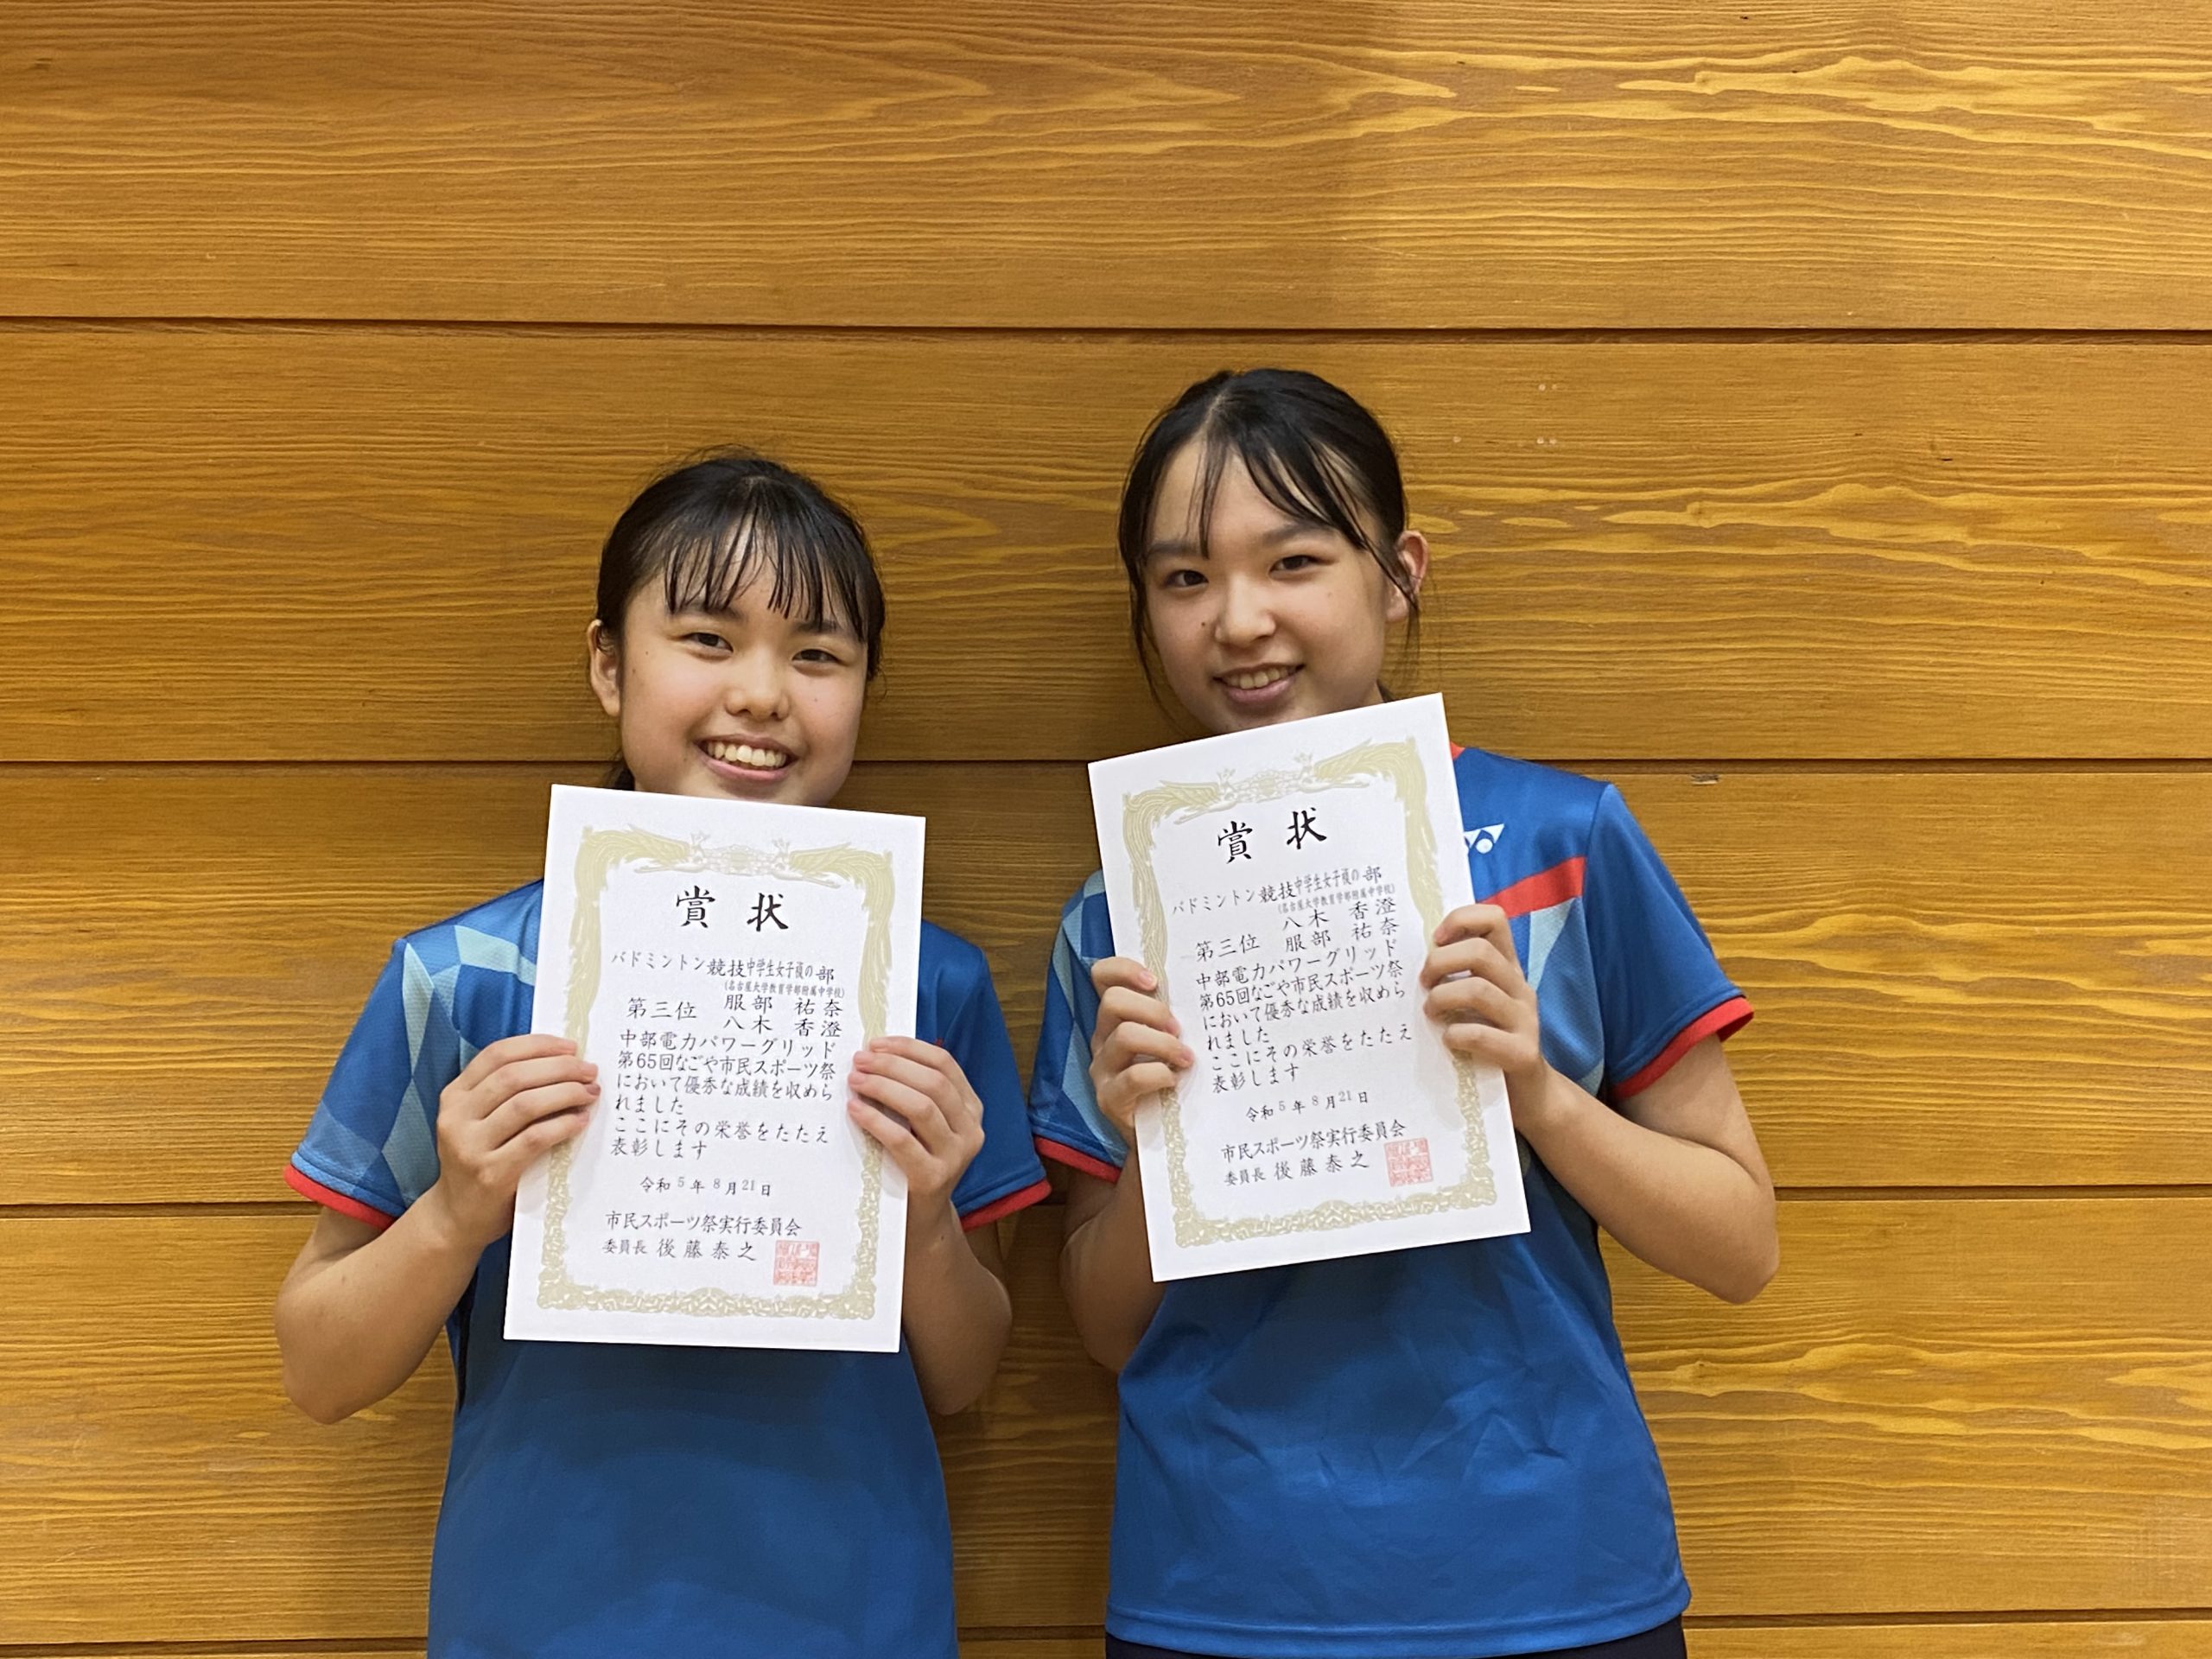 賞状
バドミントン競技中学生女子複の部
(名古屋大学教育学部附属中学校)
第三位 服部 祐奈
八木 香澄
中部電力パワーグリッド
第65回なごや市民スポーツ祭
において優秀な成績を収めら
れました
ここにその栄誉をたたえ
表彰します
令和5年8月21日
市民スポーツ祭実行委員会
委員長 後藤泰之
賞状
バドミントン競技中学生女子複の部
(名古屋大学教育学部附属中学校)
八木 香澄
第三位 服部 祐奈
中部電力パワーグリッド
第65回なごや市民スポーツ祭
において優秀な成績を収めら
れました
ここにその栄誉をたたえ
表彰します
令和5年8月21日
市民スポーツ祭実行委員会
委員長 後藤泰之